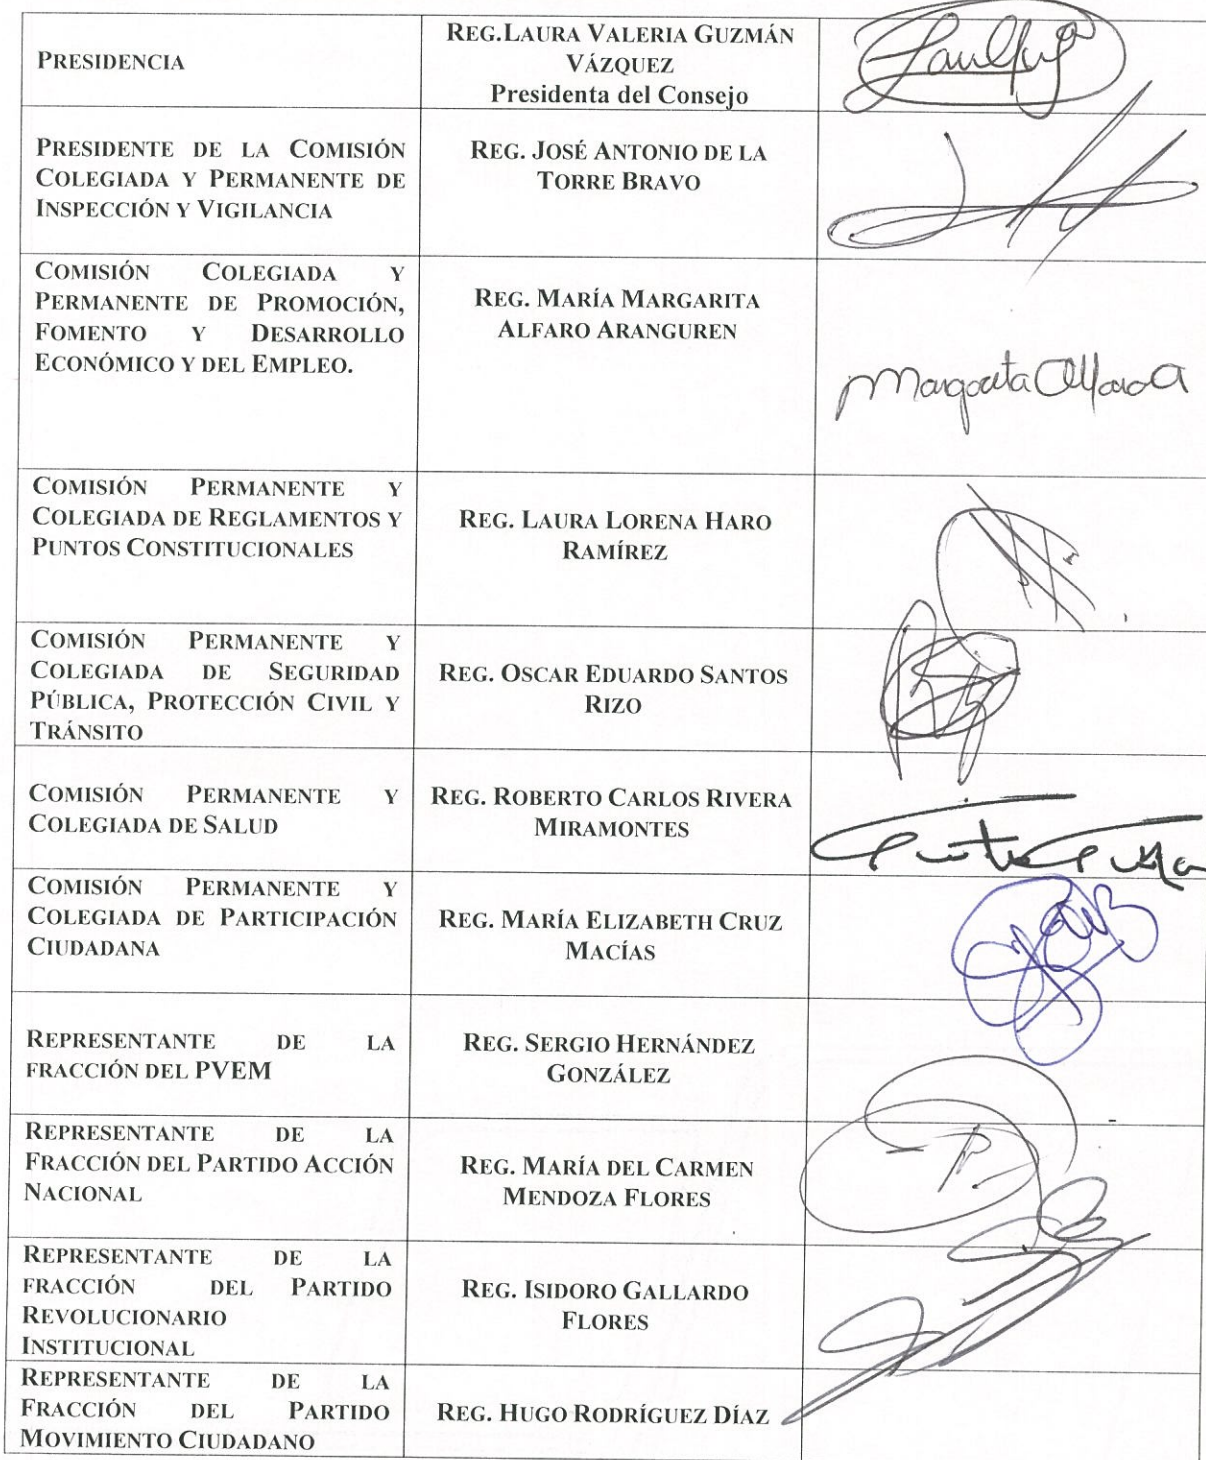 PRESIDENCIA
REG.LAURA VALERIA GUZMÁN
VÁZQUEZ
Presidenta del Consejo
PRESIDENTE DE LA COMISIÓN
COLEGIADA Y PERMANENTE DE
INSPECCIÓN Y VIGILANCIA
REG. JOSÉ ANTONIO DE LA
TORRE BRAVO
COMISIÓN COLEGIADA Y
PERMANENTE DE PROMOCIÓN,
FOMENTO Y DESARROLLO
ECONÓMICO Y DEL EMPLEO.
REG. MARÍA MARGARITA
ALFARO ARANGUREN
Margarita Alfaro A
COMISIÓN PERMANENTE Y
COLEGIADA DE REGLAMENTOS Y
PUNTOS CONSTITUCIONALES
REG. LAURA LORENA HARO
RAMÍREZ
COMISIÓN PERMANENTE Y
COLEGIADA DE SEGURIDAD
PÚBLICA, PROTECCIÓN CIVIL Y
TRÁNSITO
REG. OSCAR EDUARDO SANTOS
RIZO
COMISIÓN PERMANENTE Y
COLEGIADA DE SALUD
REG. ROBERTO CARLOS RIVERA
MIRAMONTES
COMISIÓN PERMANENTE Y
COLEGIADA DE PARTICIPACIÓN
CIUDADANA
REG. MARÍA ELIZABETH CRUZ
MACÍAS
REPRESENTANTE DE LA
FRACCIÓN DEL PVEM
REG. SERGIO HERNÁNDEZ
GONZÁLEZ
REPRESENTANTE DE LA
FRACCIÓN DEL PARTIDO ACCIÓN
NACIONAL
REG. MARÍA DEL CARMEN
MENDOZA FLORES
REPRESENTANTE DE LA
FRACCIÓN DEL PARTIDO
REVOLUCIONARIO
INSTITUCIONAL
REG. ISIDORO GALLARDO
FLORES
REPRESENTANTE DE LA
FRACCIÓN DEL PARTIDO
MOVIMIENTO CIUDADANO
REG. HUGO RODRÍGUEZ DÍAZ